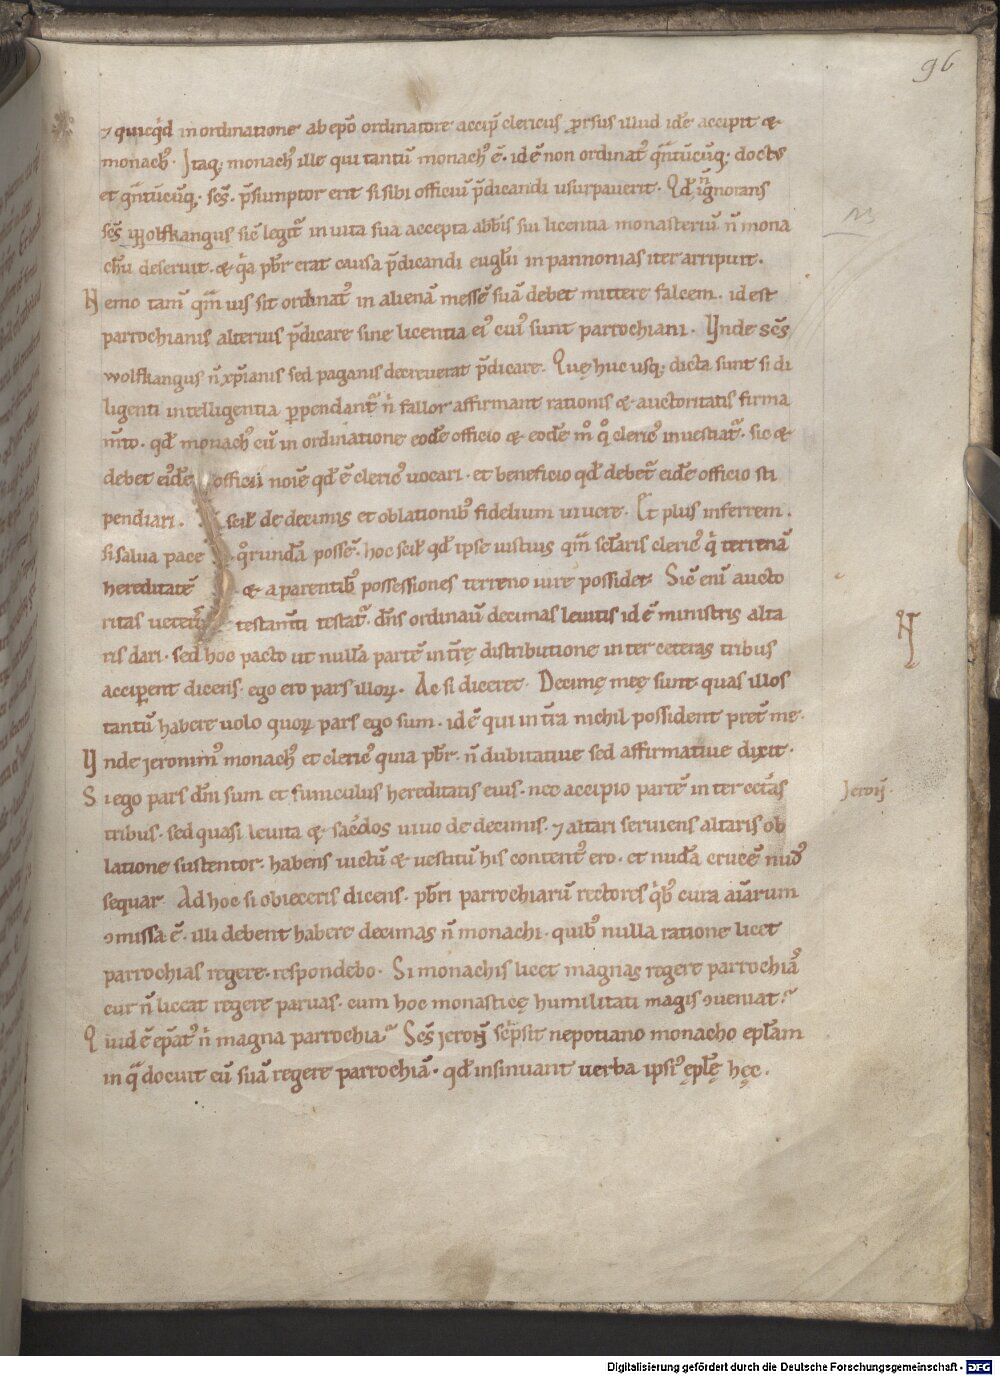 96
⁊ quicq̇d in ordinatione ab ep̄o ordinatore accip̄ clericus ꝓrsus illud idē accipit &
monachꝰ. Itaq; monachꝰ ille qui tantū monachꝰ ē. id ē non ordinatꝰ qn̄tūcūq; doctꝰ
et qn̄tūcūq; sc̄s. p̄sumptor erit si sibi officiū p̄dicandi usurpauerit. Qd̄ n̄ ignorans
sc̄s Wolfkangus sic̄ legit᷑ in uita sua accepta abb̄is sui licentia monasteriū n̄ mona
chū deseruit. & q̇a pb̄r erat causa p̄dicandi eugl̄ii in pannonias iter arripuit.
Nemo tam̄ qm̄uis sit ordinatꝰ in alienā messē suā debet mittere falcem. id est
parrochianis alterius p̄dicare sine licentia eiꝰ cuiꝰ sunt parrochiani. Vnde sc̄s
wolfkangus n̄ xp̄ianis sed paganis decreuerat p̄dicare. Quę huc usq; dicta sunt si di
ligenti intelligentia ꝑpendant᷑ n̄ fallor affirmant rationis & auctoritatis firma
m̄to. qd̄ monachꝰ cū in ordinatione eodē officio & eodē m̊ q̊ clericꝰ inuestiat᷑. sic &
debet eiꝰdē officii noīe qd̄ ē clericꝰ uocari. et beneficio qd̄ debet᷑ eidē officio sti
pendiari. scil̄ de decimis et oblationibꝰ fidelium uiuere. Et plus inferrem.
si salua pace q̊rundā possē. hoc scil̄ qd̄ ipse iustius qm̄ sc̄laris clericꝰ q̇ terrenā
hereditatē & a parentibꝰ possessiones terreno iure possidet. Sic̄ eni᷑ aucto
ritas ueteris testam̄ti testat᷑. dn̄s ordinau᷑ decimas leuitis id ē ministris alta
ris dari. sed hoc pacto ut nullā partē in tr̄ę distributione inter ceteras tribus
acciperent dicens. ego ero pars illoꝝ. Ac si diceret. Decimę męę sunt quas illos
tantū habere uolo quoꝝ pars ego sum. id ē qui in tr̄a nichil possident pret᷑ me.
Vnde jeronimꝰ monachꝰ et clericꝰ quia pb̄r. n̄ dubitatiue sed affirmatiue dixit.
Si ego pars dn̄i sum et funiculus hereditatis eius. nec accipio partē inter cet̄as
Jeroń.
tribus. sed quasi leuita & sac̄dos uiuo de decimis. ⁊ altari seruiens altaris ob
latione sustentor. habens uictū & uestitū his contentꝰ ero. et nudā crucē nudꝰ
sequar. Ad hoc si obieceris dicens. pb̄ri parrochiarū rectores q̇bꝰ cura aīarum
ꝯmissa ē. illi debent habere decimas n̄ monachi. quibꝰ nulla ratione licet
parrochias regere. respondebo. Si monachis licet magnas regere parrochias
cur n̄ liceat regere paruas. cum hoc monasticę humilitati magis ꝯueniat?
Quid ē ep̄atꝰ n̄ magna parrochia? Sc̄s jeroń scripsit nepotiano monacho epl̄am
in q̄ docuit eū suā regere parrochiā. qd̄ insinuant uerba ipsiꝰ ępl̄ę hęc.
Digitalisierung gefördert durch die Deutsche Forschungsgemeinschaft - DFG